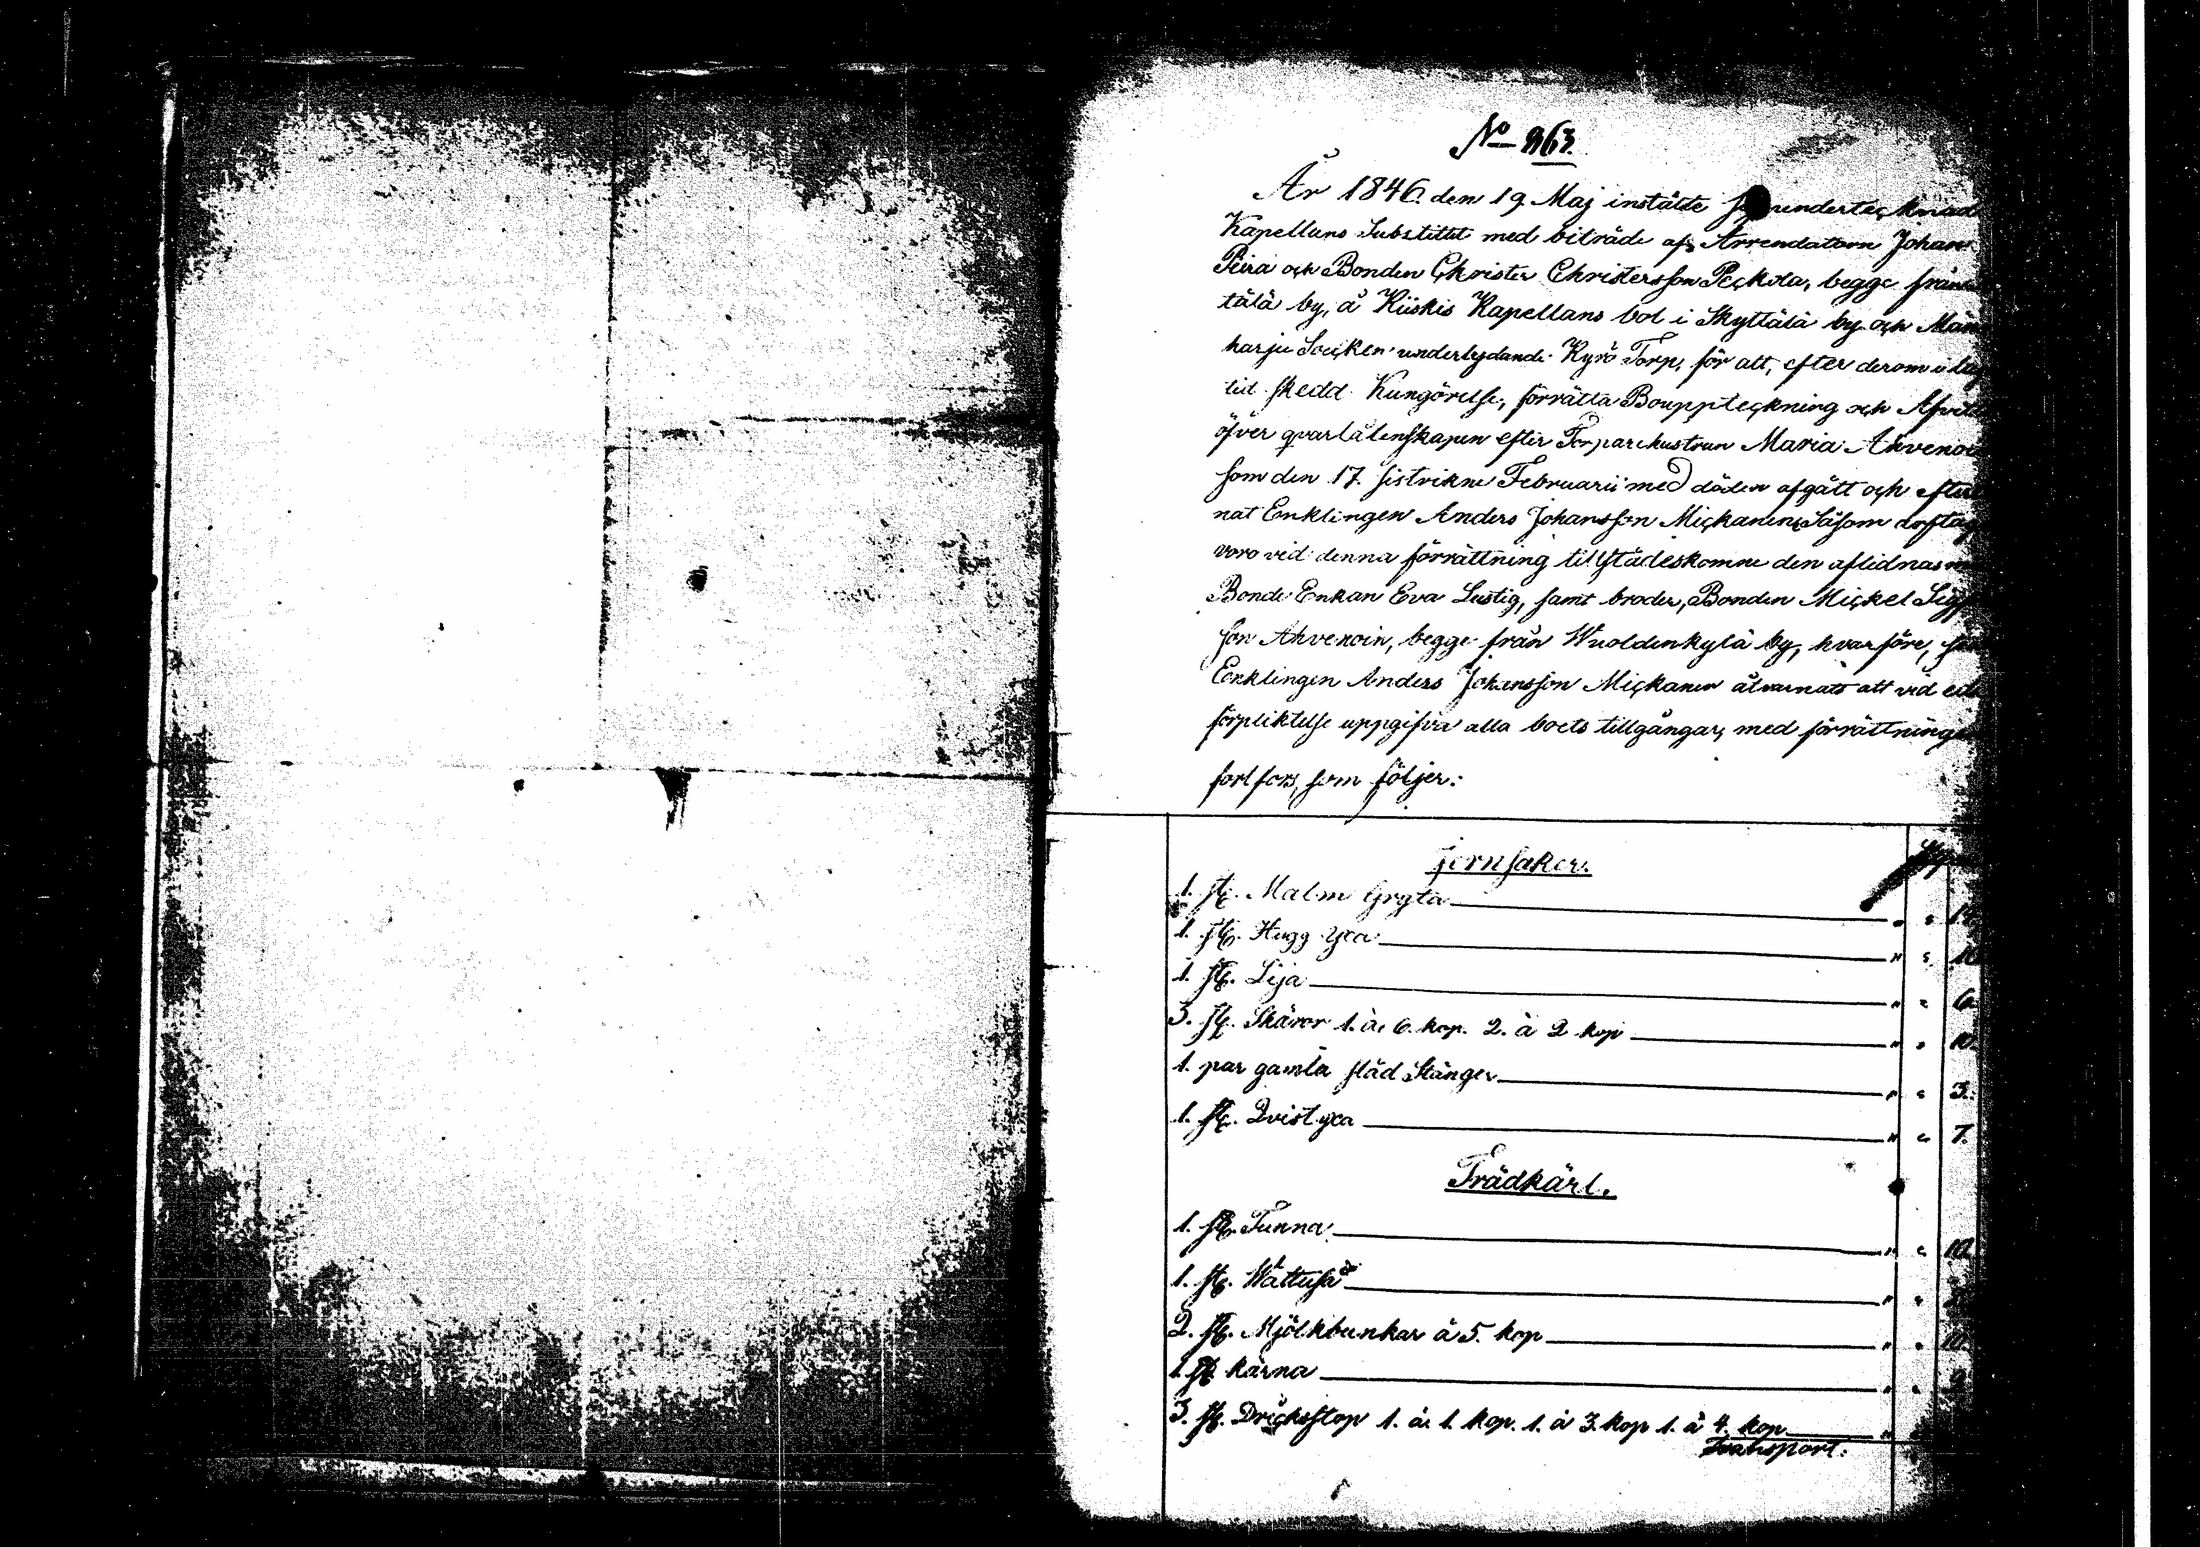 No 963.
År 1846. den 19 Maj instälte undertecknad
Kapellans Substitut med biträde af Arrendatorn Johan
Peira och Bonden Christer Christersson Peckola, begge från
tälä by, å Kiiskis Kapellans bol i Skyttälä by och Män
harju Socken underlydande Kyrö Torp, för att, efter derom i lag
tid skedd Kungörelse, förrätta Bouppteckning och
öfver qvarlåtenskapen efter Torparehustrun Maria Ahvenoin
som den 17. sistvikne Februarii med döden afgått och efter
nat Enklingen Anders Johansson Mickanen, Såsom
voro vid denna förrättning tillstädeskomne den aflidnas
Bonde Enkan Eva Lustig, samt broder, Bonden Mickel
son Ahvenoin, begge från Wuoldenkylä by, hvarföre,
Enklingen Anders Johansson Mickanen alvarnats att vid
förpliktelse uppgifva alla boets tillgångar, med förrättning
fortfors, som följer:
Jernsaker.
1. st. Malm Gryta " "
1. st. Hugg Yxa " "
1. st. Lija " " 6.
3. st. Skäror 1. à 6. kop. 2. à 2 kop " " 10.
1. par gamla släd Stänger " " 3.
1. st. Qvist yxa " " 7.
Trädkärl.
1. st. Tunna " " 10.
1. st. Wattuså " "
2. st. Mjölkbunkar à 5. kop " " 10.
1. st kärna " "
3. st. Dricksstop 1. à 1. kop. 1. à 3. kop 1. à 4. kop "
Transport.